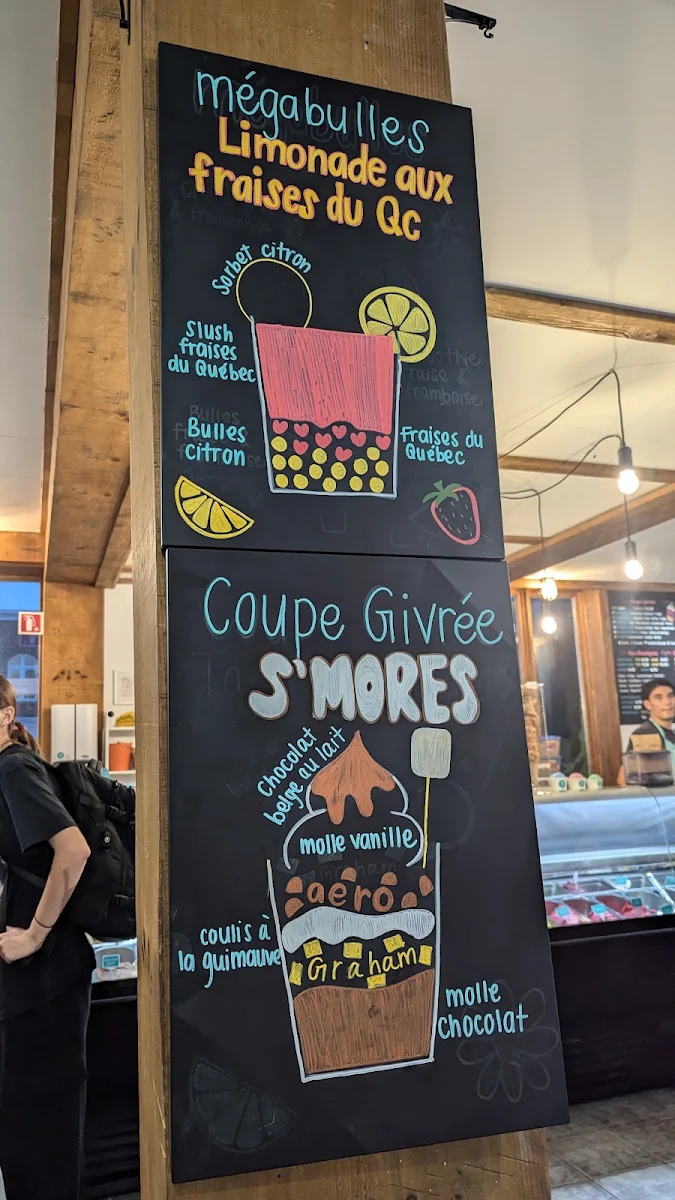 mégabulles
Limonade aux
fraises du Qc
Sorbet citron
Slush
fraises
du Québec
Bulles
citron
Fraises du
Québec
Coupe Givrée
S'MORES
Chocolat
belge au lait
molle vanille
aero
coulis à
la guimauve
Graham
molle
chocolat